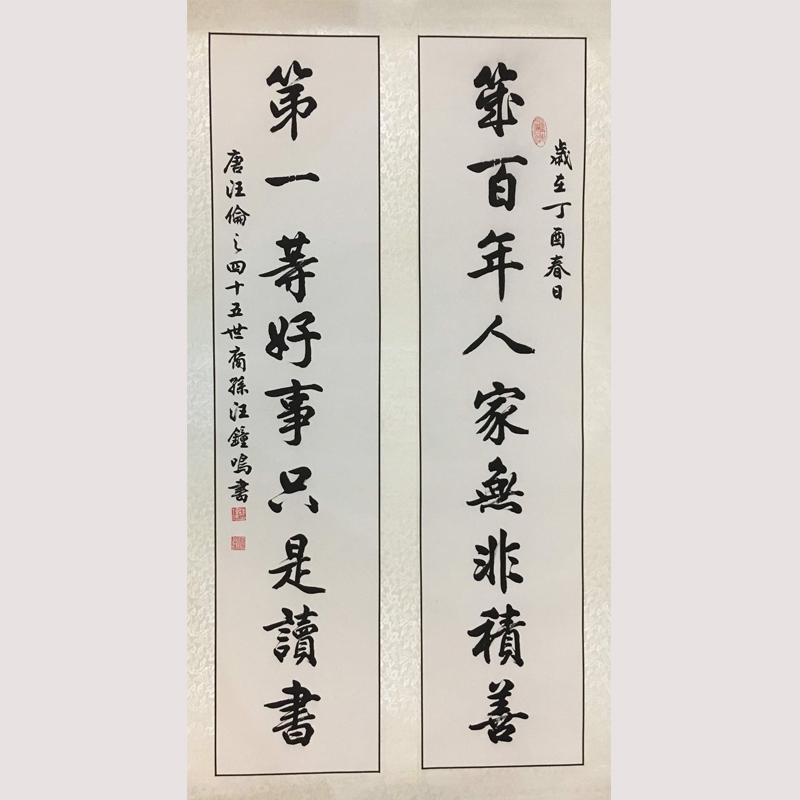 歲在丁酉春日
幾百年人家無非積善
第一等好事只是讀書
唐汪倫之四十五世裔孫汪鐘鳴書